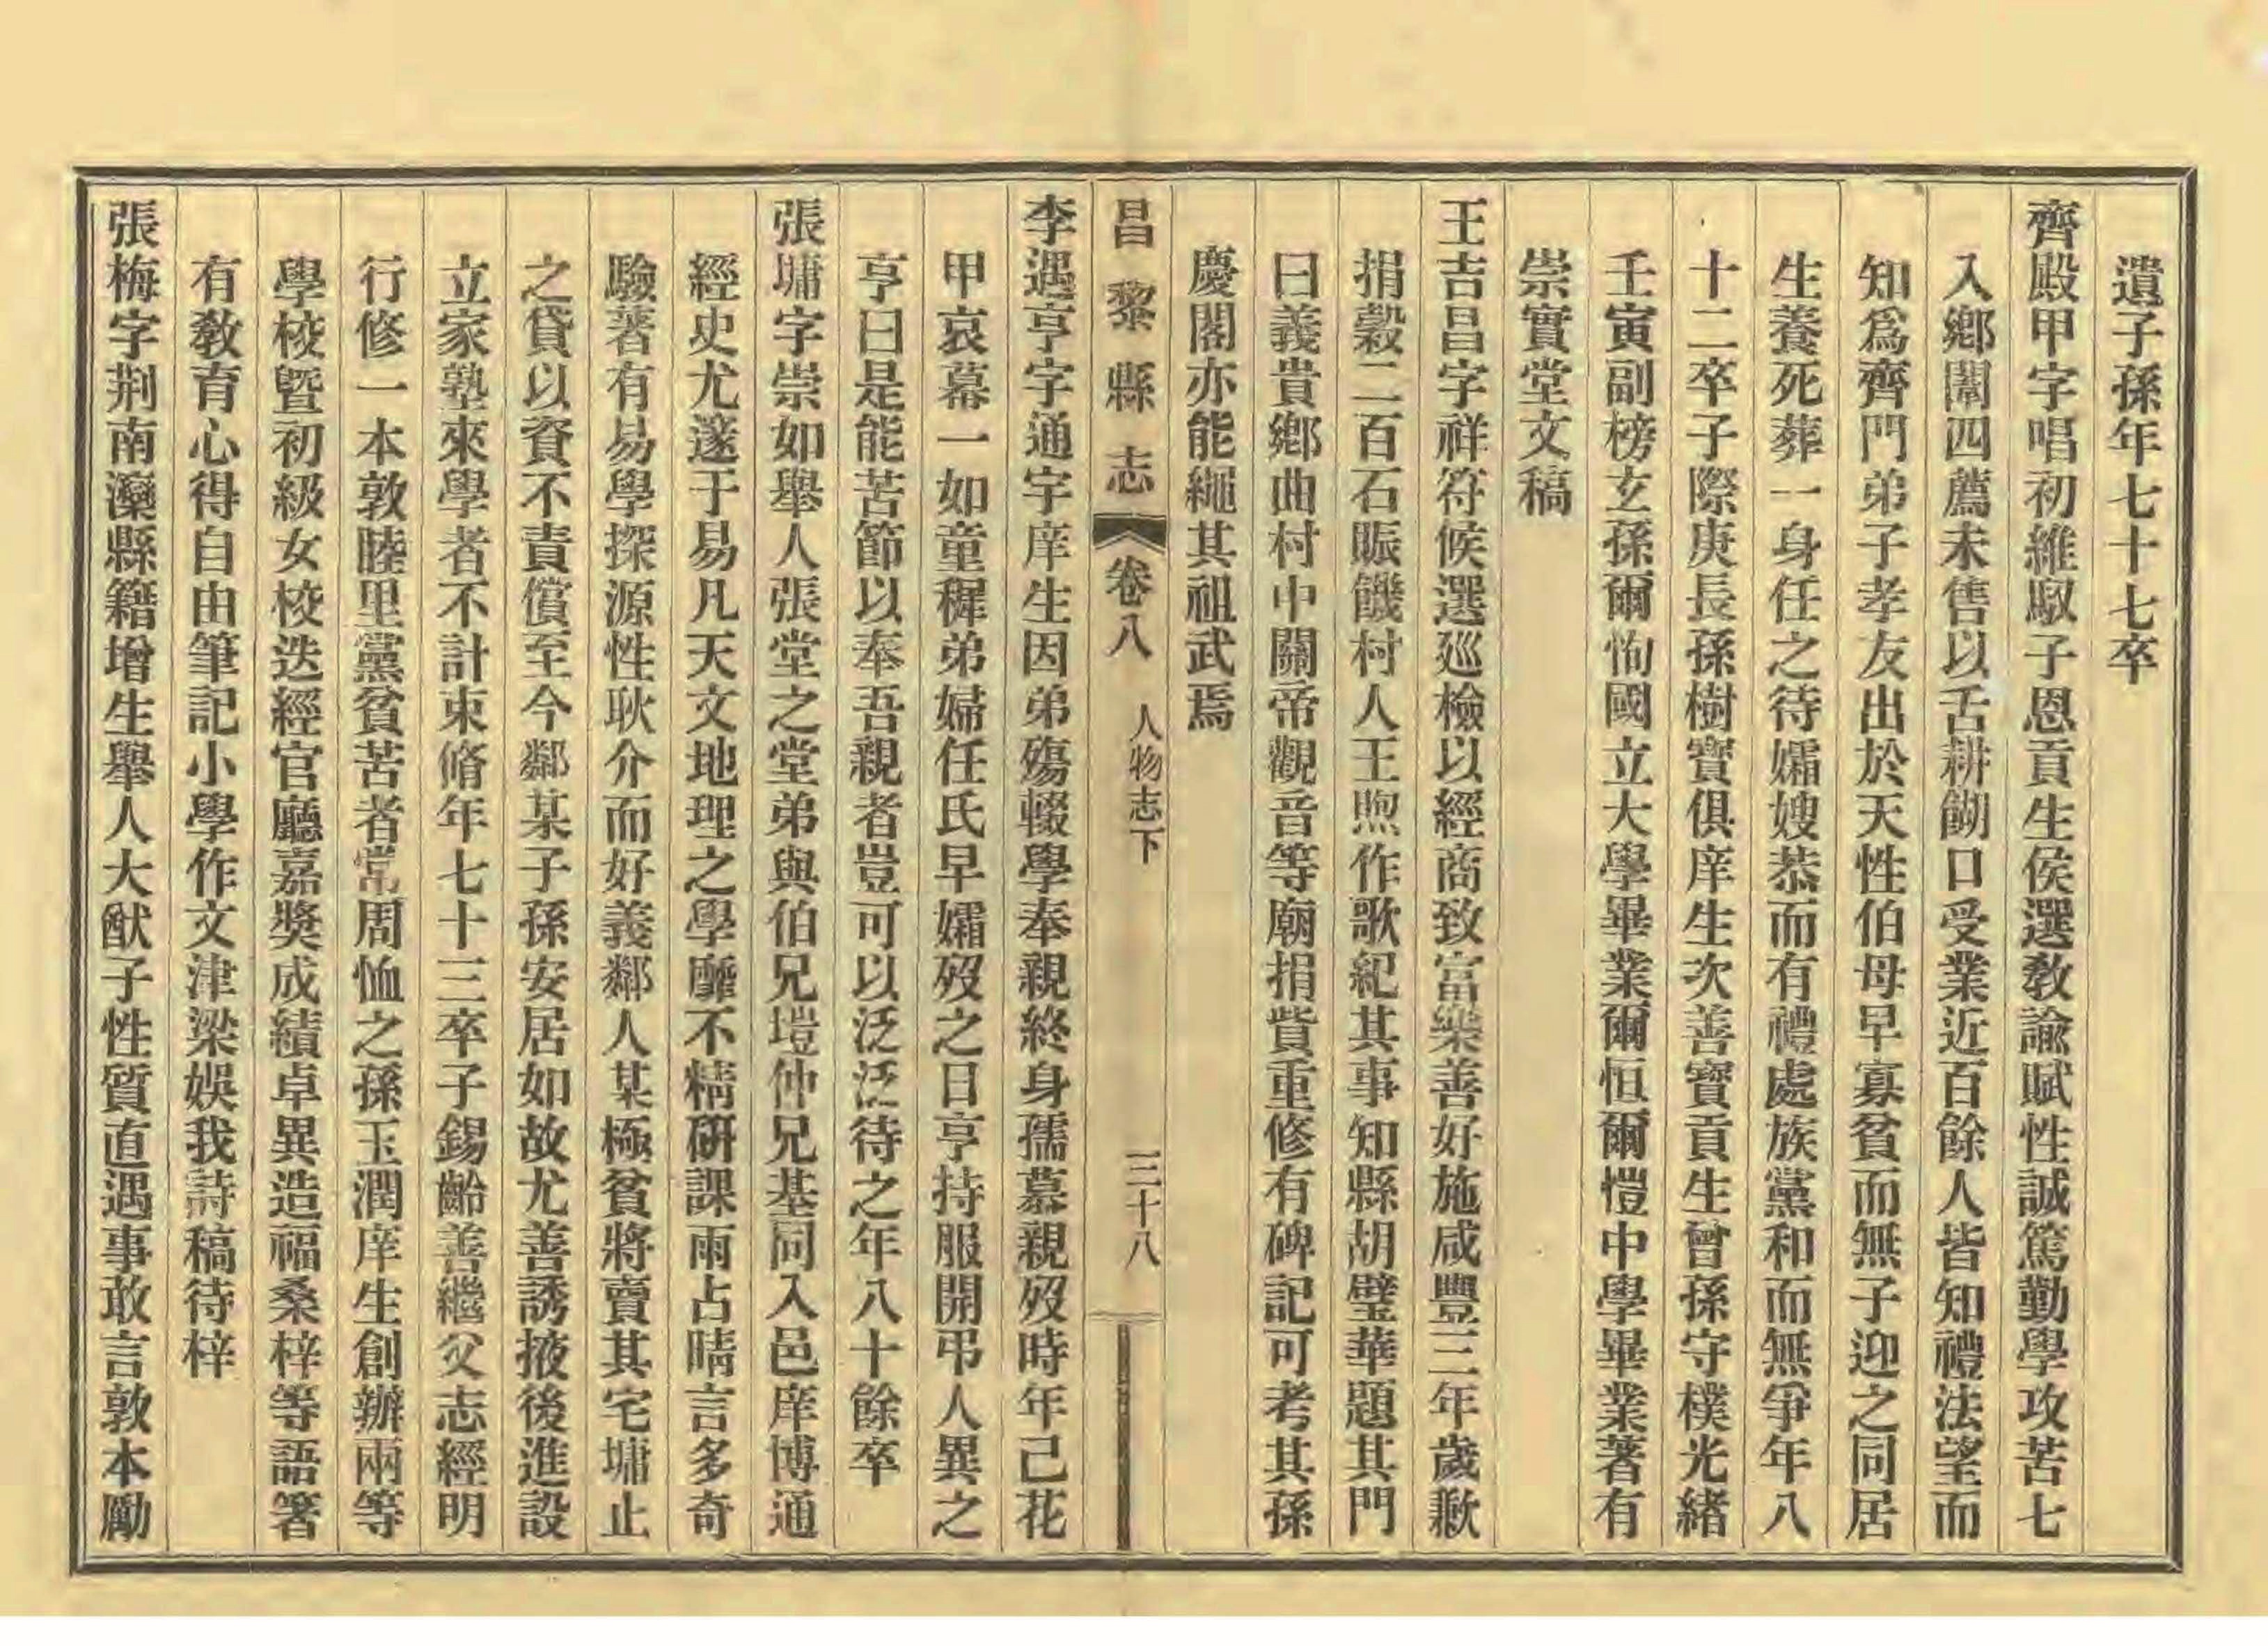 遺子孫年七十七卒
齊殿甲字唱初維馭子恩貢生侯選敎諭賦性誠篤勤學攻苦七
入鄉闈四薦未售以舌耕餬口受業近百餘人皆知禮法望而
知爲齊門弟子孝友出於天性伯母早寡貧而無子迎之同居
生養死葬一身任之待孀嫂恭而有禮處族黨和而無爭年八
十二卒子際庚長孫樹寶俱庠生次善寶貢生曾孫守樸光緒
壬寅副榜玄孫爾恂國立大學畢業爾恒爾愷中學畢業著有
崇實堂文稿
王吉昌字祥符候選巡檢以經商致富樂善好施咸豐三年歲歉
捐穀二百石賑饑村人王煦作歌紀其事知縣胡璧華題其門
曰義貴鄉曲村中關帝觀音等廟捐貲重修有碑記可考其孫
慶閣亦能繩其祖武焉
昌黎縣志 卷八 人物志下 三十八
李遇亨字通宇庠生因弟殤輟學奉親終身孺慕親歿時年己花
甲哀幕一如童穉弟婦任氏早孀歿之日亨持服開弔人異之
亨曰是能苦節以奉吾親者豈可以泛泛待之年八十餘卒
張墉字崇如舉人張堂之堂弟與伯兄塏仲兄基同入邑庠博通
經史尤邃于易凡天文地理之學靡不精研課雨占晴言多奇
驗著有易學探源性耿介而好義鄰人某極貧將賣其宅墉止
之貸以資不責償至今鄰某子孫安居如故尤善誘掖後進設
立家塾來學者不計束脩年七十三卒子錫齡善繼父志經明
行修一本敦睦里黨貧苦者常周恤之孫玉潤庠生創辦兩等
學校曁初級女校迭經官廳嘉奬成績卓異造福桑梓等語箸
有敎育心得自由筆記小學作文津梁娛我詩稿待梓
張梅字荆南灤縣籍增生舉人大猷子性質直遇事敢言敦本勵